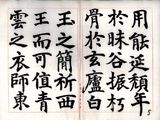 用能延頹年
於昧谷振朽
骨於玄廬白
玉之簡祈西
王而可值青
雲之衣師東
5